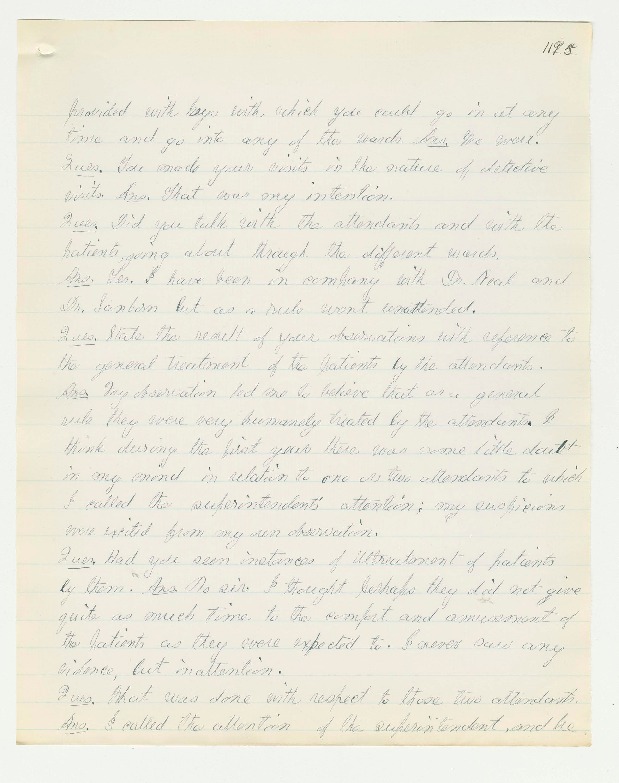 1195
provided with keys with which you could go in at any
time and go into any of the wards Ans. We were.
Ques. You made your visits in the nature of detective
visits Ans. That was my intention.
Ques. Did you talk with the attendants and with the
patients, going about through the different wards.
Ans. Yes. I have been in company with Dr. Neal and
Dr. Sanborn but as a rule went unattended.
Ques. State the result of your observations with reference to
the general treatment of the patients by the attendants.
Ans My observation led me to believe that as a general
rule they were very humanely treated by the attendants I
think during the first year there was some little doubt
in my mind in relation to one or two attendants to which
I called the superintendent's attention; my suspicions
were excited from my own observation.
Ques. Had you seen instances of illtreatment of patients
by them. Ans. No sir. I thought perhaps they did not give
quite as much time to the comfort and amusement of
the patients as they were expected to. I never saw any
violence, but inattention.
Ques. What was done with respect to those two attendants.
Ans. I called the attention of the superintendent, and he